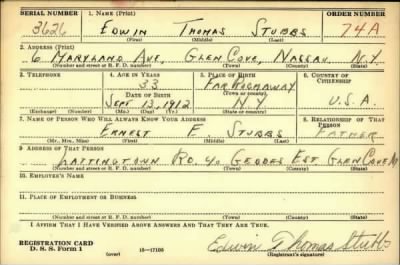 SERIAL NUMBER 1. NAME (Print) ORDER NUMBER
3626 EDWIN THOMAS STUBBS 74A
(First) (Middle) (Last)
2. ADDRESS (Print)
6 MARYLAND AVE, GLEN COVE, NASSAU, N.Y
(Number and street or R. F. D. number) (Town) (County) (State)
3. TELEPHONE 4. AGE IN YEARS 5. PLACE OF BIRTH 6. COUNTRY OF CITIZENSHIP
33 FAR ROCKAWAY
DATE OF BIRTH (Town or county)
SEPT 13, 1912 N.Y U.S.A.
(Exchange) (Number) (Mo.) (Day) (Yr.) (State or country)
7. NAME OF PERSON WHO WILL ALWAYS KNOW YOUR ADDRESS 8. RELATIONSHIP OF THAT PERSON
ERNEST F. STUBBS FATHER
(Mr., Mrs., Miss) (First) (Middle) (Last)
9. ADDRESS OF THAT PERSON
LATTINGTOWN RD. c/o GEDDES EST GLEN COVE N
(Number and street or R. F. D. number) (Town) (County) (State)
10. EMPLOYER'S NAME
11. PLACE OF EMPLOYMENT OR BUSINESS
(Number and street or R. F. D. number) (Town) (County) (State)
I AFFIRM THAT I HAVE VERIFIED ABOVE ANSWERS AND THAT THEY ARE TRUE.
REGISTRATION CARD
D. S. S. Form 1 (over) 16—17105 Edwin Thomas Stubbs
(Registrant's signature)